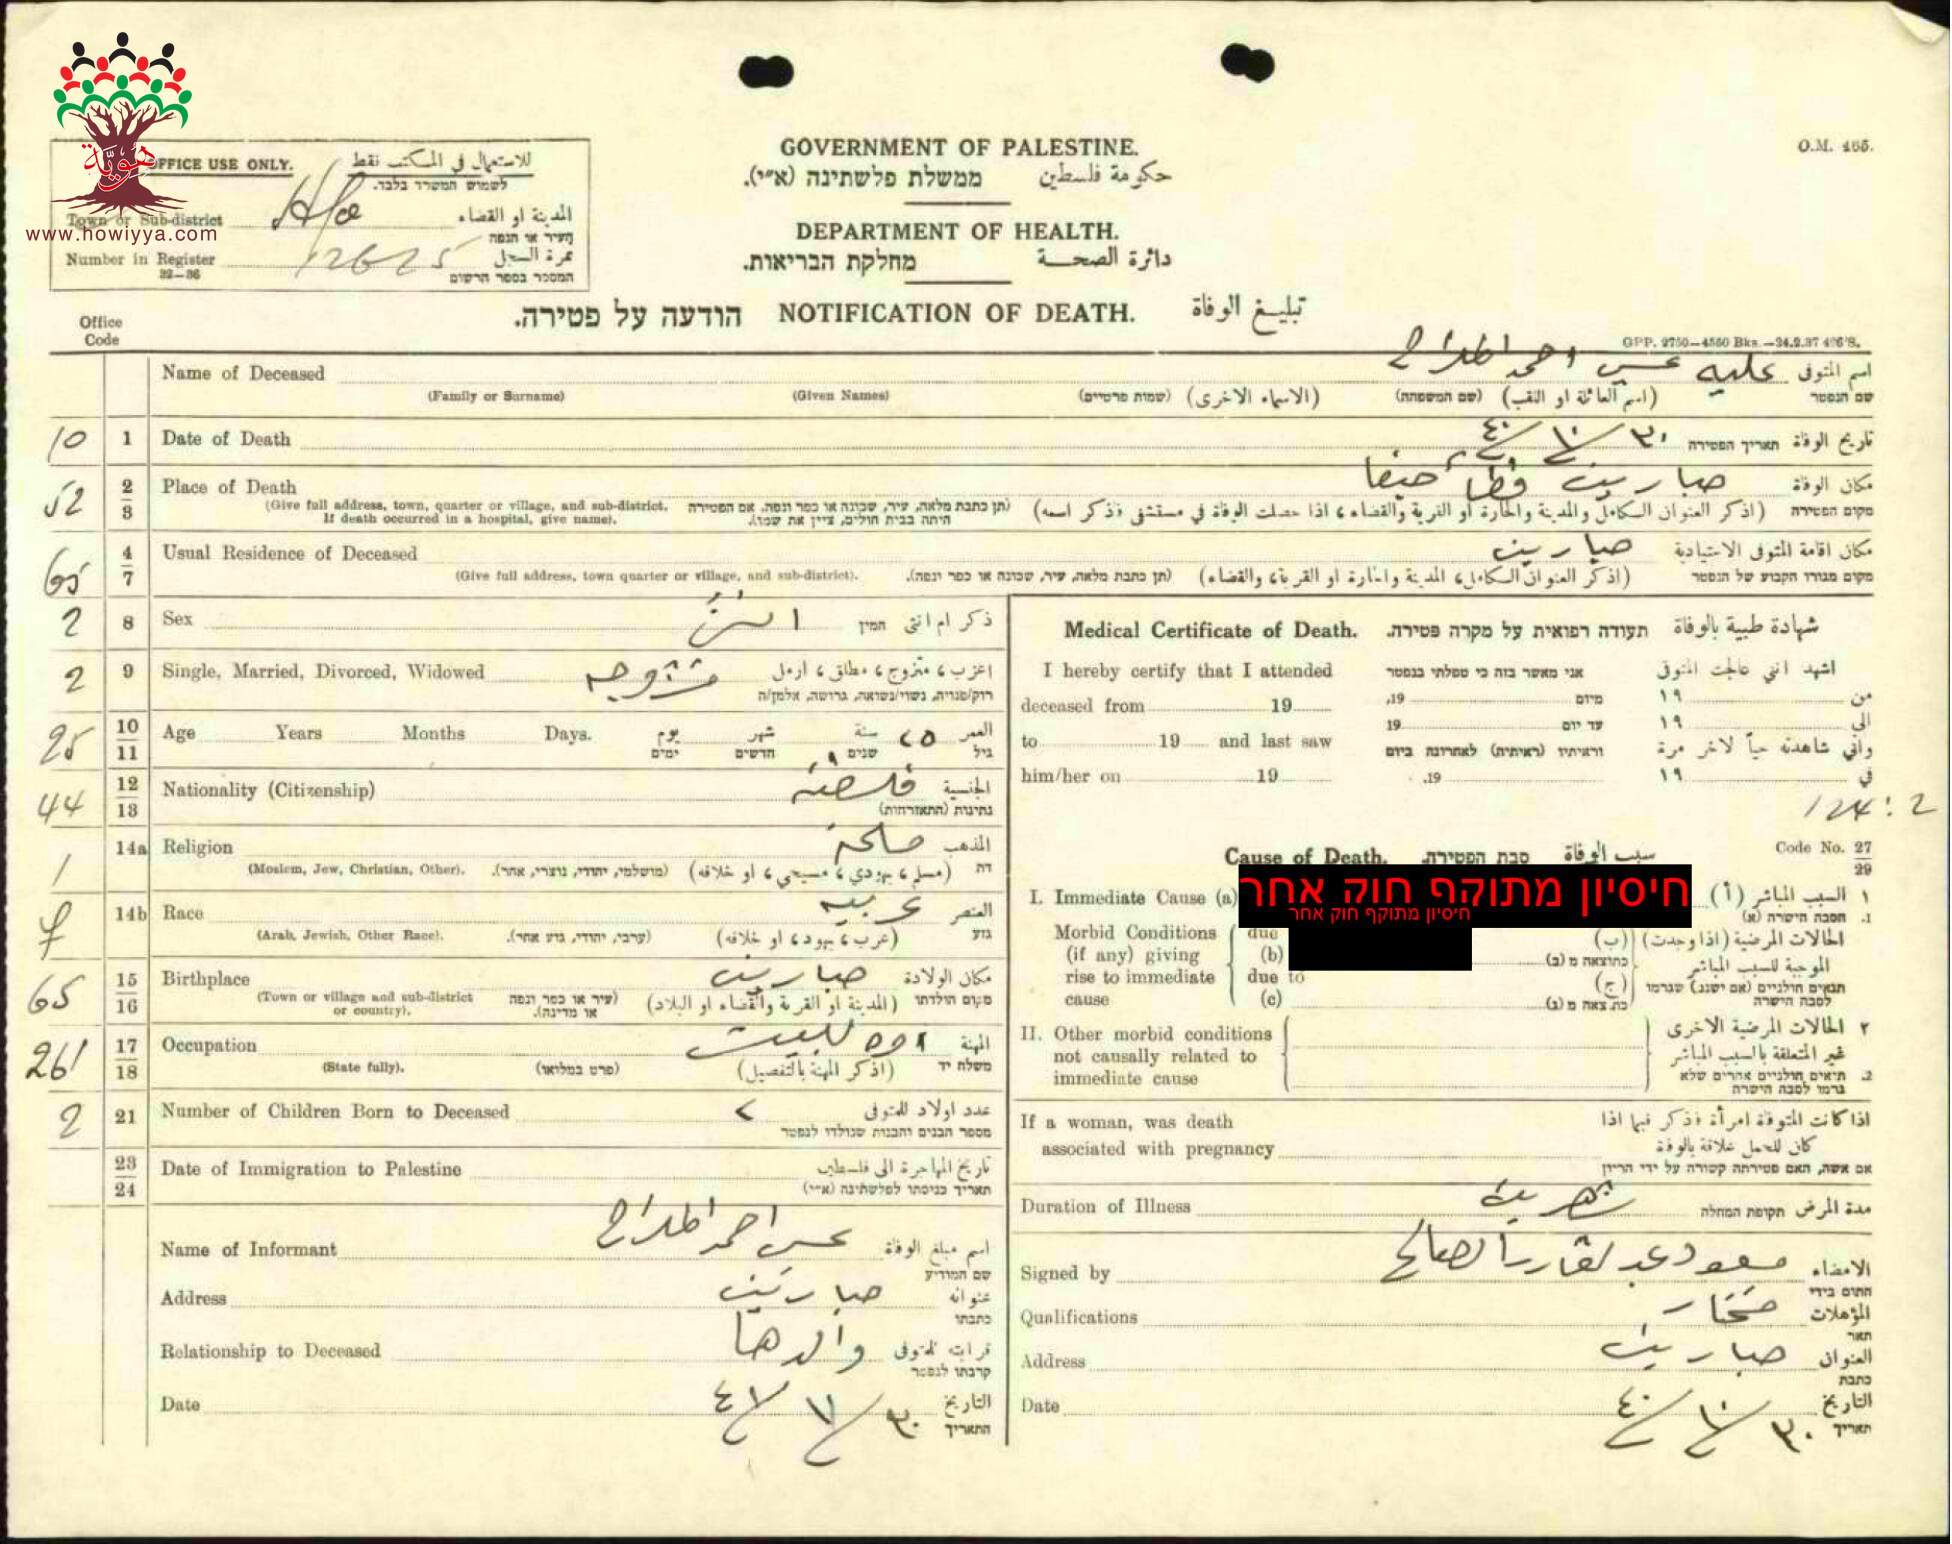 هويّة
www.howiyya.com
O.M. 465.
OFFICE USE ONLY. للاستعمال في المكتب فقط
לשמוש המשרד בלבד.
Town or Sub-district Hfa المدينة او القضاء
העיר או הנפה
Number in Register 12625 نمرة السجل
32—36 המספר בספר הרשום
GOVERNMENT OF PALESTINE.
ממשלת פלשתינה (א״י). حكومة فلسطين
DEPARTMENT OF HEALTH.
מחלקת הבריאות. دائرة الصحة
הודעה על פטירה. NOTIFICATION OF DEATH. تبليغ الوفاة
Office
Code
GPP. 2750—4550 Bks.—24.2.37
Name of Deceased احمد اسم المتوفى
(Family or Surname) (Given Names) (שמות פרטיים) (الاسماء الاخرى) (שם המשפחה) (اسم العائلة او اللقب) שם הנפטר
10 1 Date of Death ٣٠/١٠/٤٠ תאריך הפטירה تاريخ الوفاة
52 2/3 Place of Death صبارين قضاء حيفا مكان الوفاة
(Give full address, town, quarter or village, and sub-district. If death occurred in a hospital, give name). (תן כתבת מלאה, עיר, שכונה או כפר ונפה. אם הפטירה היתה בבית חולים, ציין את שמו). (اذكر العنوان الكامل والمدينة والحارة او القرية والقضاء، اذا حصلت الوفاة في مستشفى فذكر اسمه) מקום הפטירה
65 4/7 Usual Residence of Deceased صبارين مكان اقامة المتوفى الاعتيادية
(Give full address, town quarter or village, and sub-district). (תן כתבת מלאה, עיר, שכונה או כפר ונפה). (اذكر العنوان الكامل، المدينة والحارة او القرية، والقضاء) מקום מגורו הקבוע של הנפטר
2 8 Sex המין ذكر ام انثى
2 9 Single, Married, Divorced, Widowed متزوجه اعزب، متزوج، مطلق، ارمل
רוק/פנויה, נשוי/נשואה, גרושה, אלמן/ה
25 10/11 Age Years Months Days. יום يوم شهر חדשים ٢٥ سنة שנים العمر
ימים גיל
44 12/13 Nationality (Citizenship) الجنسية
נתינות (התאזרחות)
1 14a Religion المذهب
(Moslem, Jew, Christian, Other). (מושלמי, יהודי, נוצרי, אחר). (مسلم، يهودي، مسيحي، او خلافه) דת
14b Race عربيه العنصر
(Arab, Jewish, Other Race). (ערבי, יהודי, גזע אחר). (عرب، يهود، او خلافه) גזע
65 15/16 Birthplace صبارين مكان الولادة
(Town or village and sub-district or country). (עיר או כפר ונפה או מדינה). (المدينة او القرية والقضاء او البلاد) מקום הולדתו
261 17/18 Occupation المهنة
(State fully). (פרט במלואו) (اذكر المهنة بالتفصيل) משלח יד
2 21 Number of Children Born to Deceased ٢ عدد اولاد المتوفى
מספר הבנים והבנות שנולדו לנפטר
23/24 Date of Immigration to Palestine تاريخ المهاجرة الى فلسطين
תאריך כניסתו לפלשתינה (א״י)
Name of Informant احمد اسم مبلغ الوفاة
שם המודיע
Address صبارين عنوانه
כתבתו
Relationship to Deceased والدها قرابته للمتوفى
קרבתו לנפטר
Date ٣٠/١١/٤١ التاريخ
התאריך
Medical Certificate of Death. תעודה רפואית על מקרה פטירה. شهادة طبية بالوفاة
I hereby certify that I attended אני מאשר בזה כי טפלתי בנפטר اشهد انني عالجت المتوفى
deceased from 19 19, מיום ١٩ من
to 19 and last saw 19 עד יום ١٩ الى
וראיתיו (ראיתיה) לאחרונה ביום واني شاهدته حياً لآخر مرة
him/her on 19 19. ١٩ في
124:2
Cause of Death. סבת הפטירה. سبب الوفاة Code No. 27/29
I. Immediate Cause (a) חיסיון מתוקף חוק אחר (أ) السبب المباشر ١
חיסיון מתוקף חוק אחר הסבה הישרה (א) .1
Morbid Conditions due (ب) الحالات المرضية (اذا وجدت)
(if any) giving (b) כתוצאה מ (ב) الموجبة للسبب المباشر
rise to immediate due to (ج) תנאים חולניים (אם ישנם) שגרמו
cause (c) כתוצאה מ (ג) לסבה הישרה
II. Other morbid conditions ٢ الحالات المرضية الاخرى
not causally related to غير المتعلقة بالسبب المباشر
immediate cause 2. תנאים חולניים אחרים שלא גרמו לסבה הישרה
If a woman, was death اذا كانت المتوفاة امرأة فذكر فيما اذا
associated with pregnancy كان للحمل علاقة بالوفاة
אם אשה, האם פטירתה קשורה על ידי הריון
Duration of Illness شهرين תקופת המחלה مدة المرض
Signed by الامضاء
חתום בידי
Qualifications مختار المؤهلات
תאר
Address صبارين العنوان
כתבת
Date ٣٠/١٠/٤٠ التاريخ
תאריך